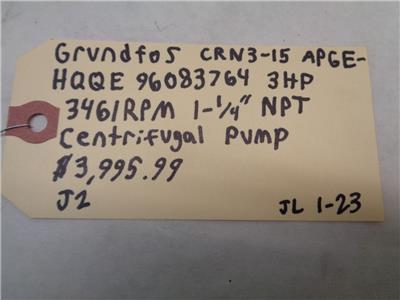 Grundfos CRN3-15 APGE-
HQQE 96083764 3HP
3461RPM 1-1/4" NPT
Centrifugal Pump
$3,995.99
J2
JL 1-23